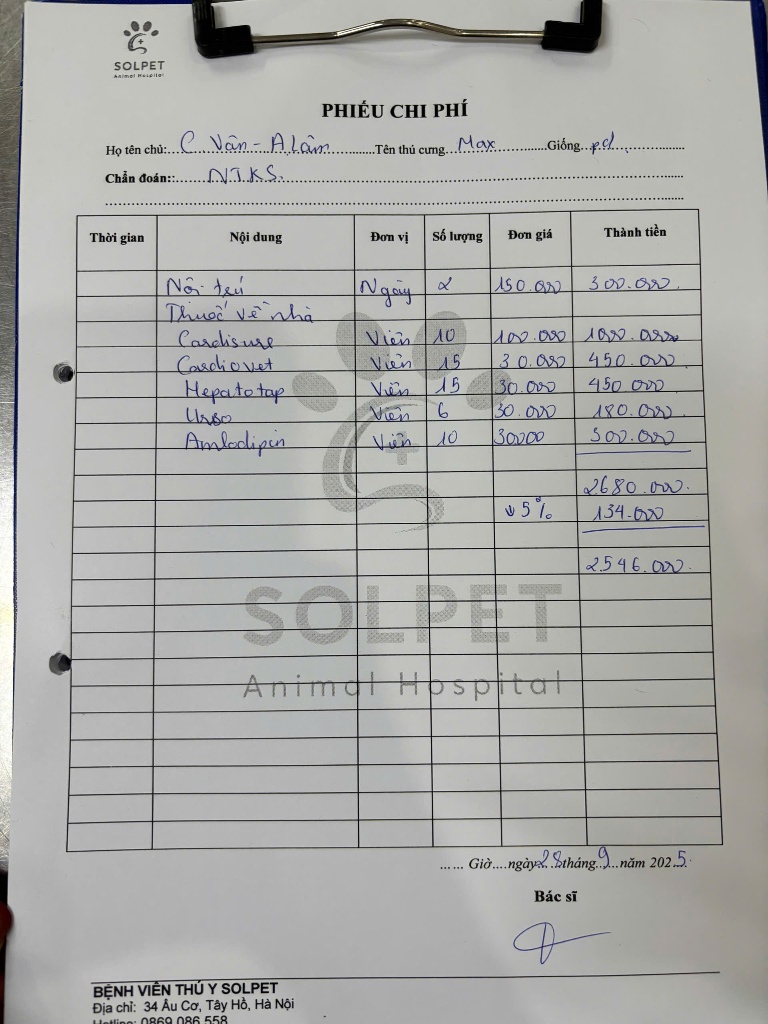 SOLPET
Animal Hospital
PHIẾU CHI PHÍ
Họ tên chủ:.....C Vân - A Lâm..........Tên thú cưng...Max..........Giống..pd............
Chẩn đoán::.......NTKS.
Thời gian Nội dung Đơn vị Số lượng Đơn giá Thành tiền
Nội trú Ngày 2 150.000 300.000.
Thuốc về nhà
Cardisure Viên 10 100.000 1000.000
Cardiovet Viên 15 30.000 450.000.
Hepatotap Viên 15 30.000 450 000
Urso Viên 6 30.000 180.000.
Amlodipin Viên 10 30000 300.000
2680.000.
↓ 5% 134.000
2546.000.
SOLPET
Animal Hospital
...... Giờ....ngày 28 tháng 9 năm 2025.
Bác sĩ
BỆNH VIỆN THÚ Y SOLPET
Địa chỉ: 34 Âu Cơ, Tây Hồ, Hà Nội
Hotline: 0869 086 558